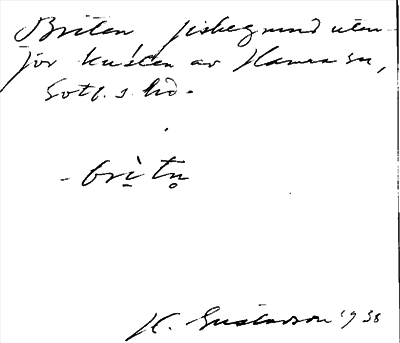 Briten fiskegrund utan-
för kusten av Hamra sn,
Gotl. s. hd.
- bri̱tn̥
H. Gustavson 1938